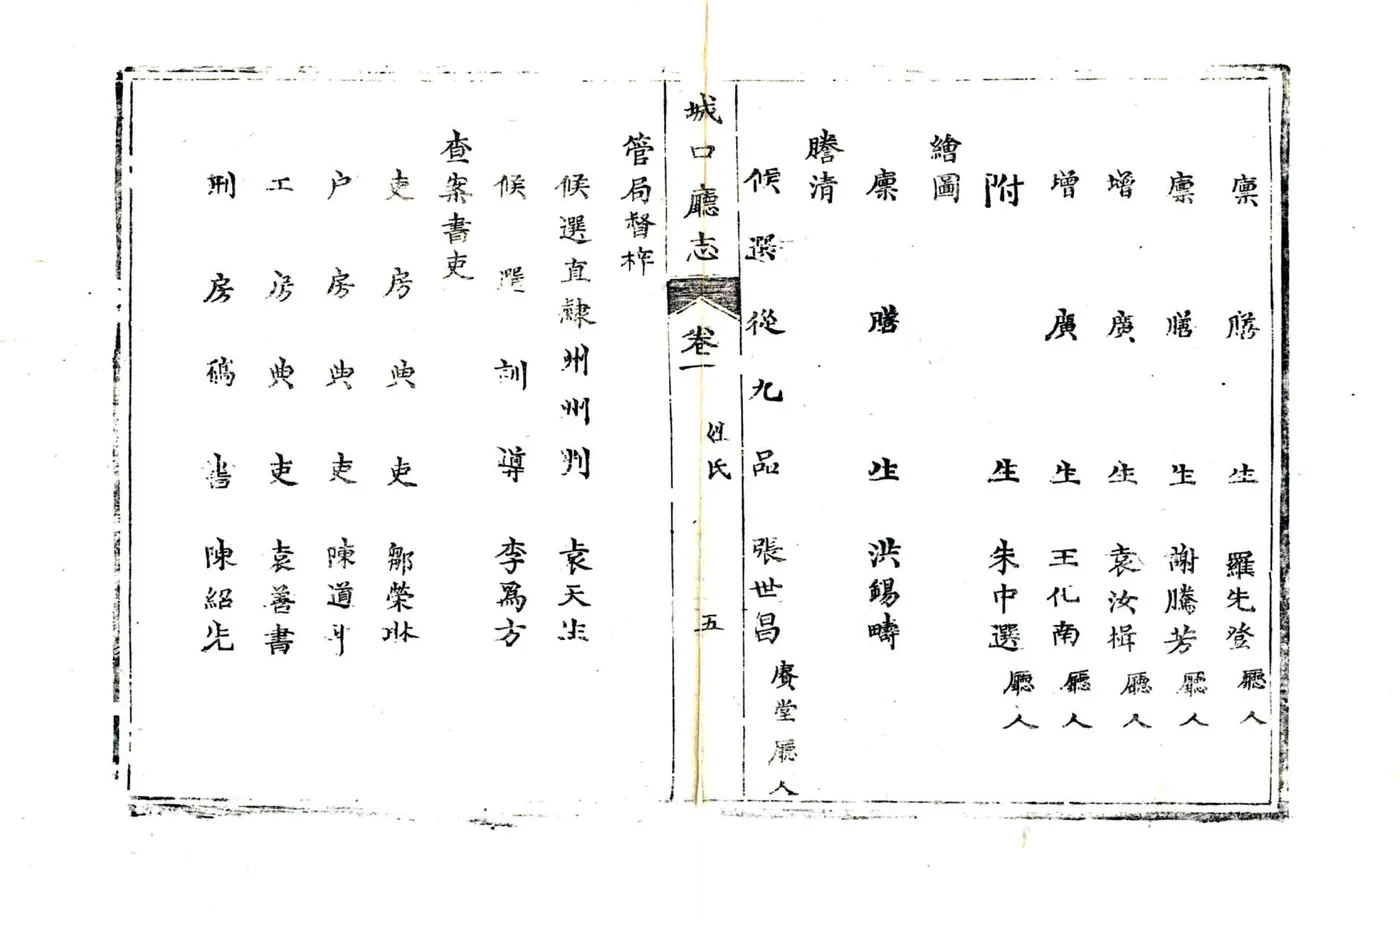 廩膳生羅先登廳人
廩膳生謝騰芳廳人
增廣生袁汝楫廳人
增廣生王化南廳人
附生朱中選廳人
繪圖
廩膳生洪錫疇
謄清
候選從九品張世昌賡堂廳人
城口廳志 卷一 姓氏 五
管局督梓
候選直隸州州判袁天生
候選訓導李爲方
查案書吏
吏房典吏鄒榮
户房典吏陳道
工房典吏袁善書
刑房稿書陳紹先